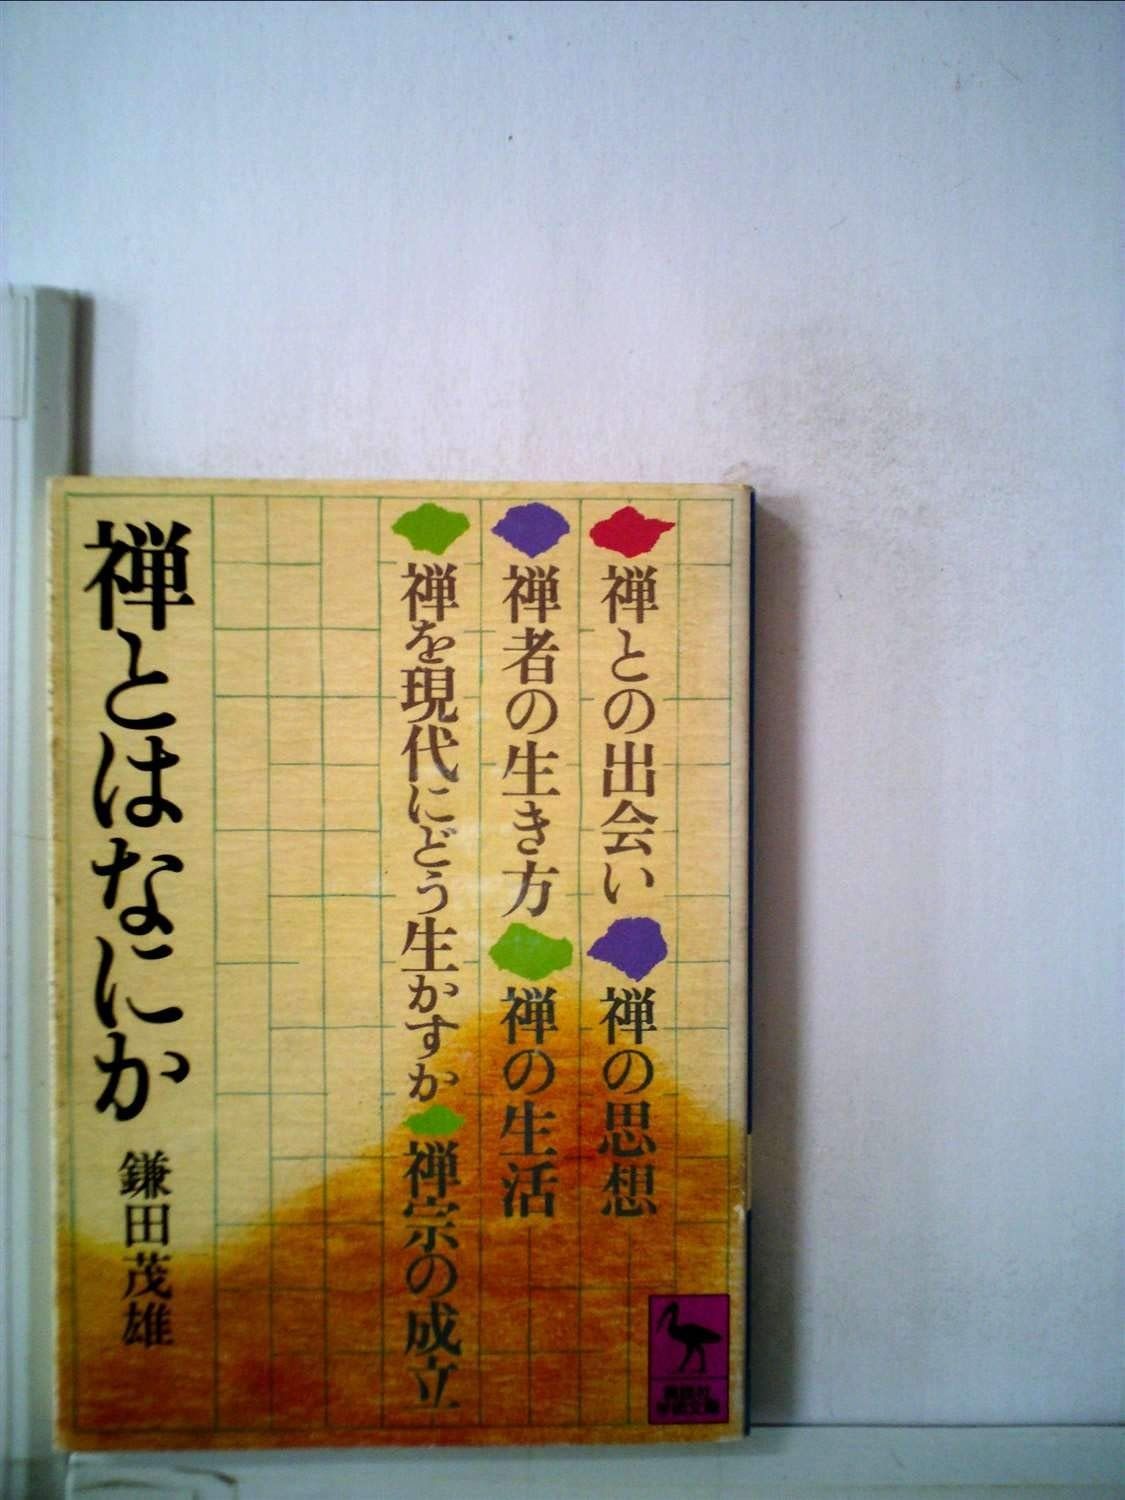 禅との出会い 禅の思想
禅者の生き方 禅の生活
禅を現代にどう生かすか 禅宗の成立
禅とはなにか
鎌田茂雄
講談社
学術文庫